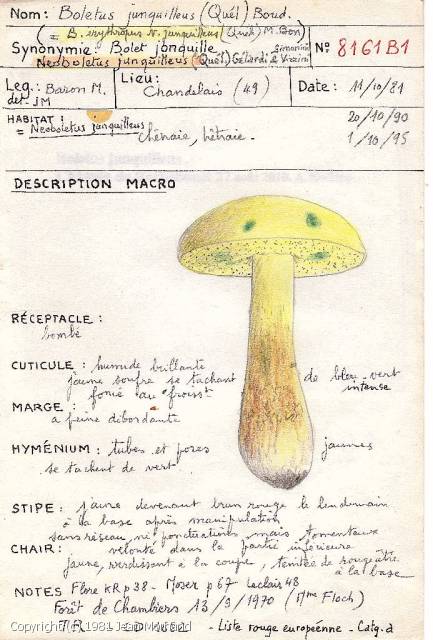 Nom: Boletus junquilleus (Quél) Boud.
(= B. erythropus v. junquilleus (Quél) M. Bon)
Synonymie: Bolet jonquille
Neoboletus junquilleus (Quél) Gelardi, Simonini & Vizzini
N° 8161B1
Leg.: Baron M.
det. JM
Lieu:
Chandelais (49)
Date: 11/10/81
20/10/90
1/10/95
HABITAT:
= Neoboletus junquilleus
Chênaie, hêtraie.
DESCRIPTION MACRO
RÉCEPTACLE:
bombé
CUTICULE: humide brillante
jaune soufre se tachant de bleu-vert
foncé au froissᵗ intense
MARGE:
à peine débordante
HYMÉNIUM: tubes et pores jaunes
se tachent de vert
STIPE: jaune devenant brun rouge le lendemain
à la base après manipulation
sans réseau, ni ponctuations mais tomenteux
velouté dans la partie inférieure
CHAIR:
jaune, verdissant à la coupe, teintée de rougeâtre
à la base
NOTES Flore KR p38 - Moser p67 Leclair 48
Forêt de Chambiers 13/9/1970 (Mme Floch)
Copyright (c) 1981 Jean Mornand
- Liste rouge européenne - Catg. a